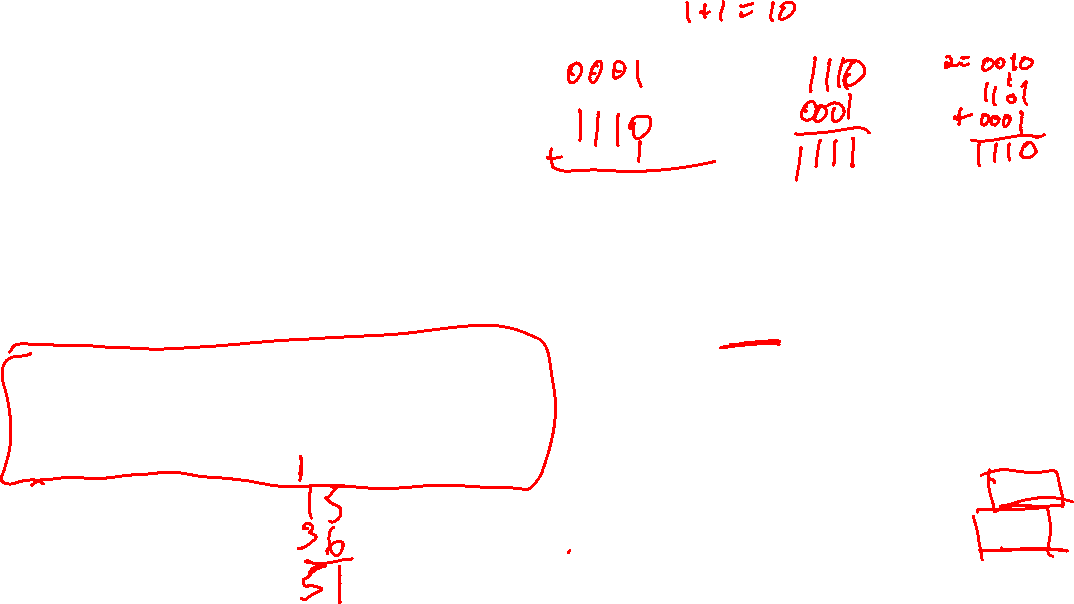 1+1=10
0001
1110
+
1110
0001
1111
2=0010
1
1101
+0001
1110
1
15
36
51